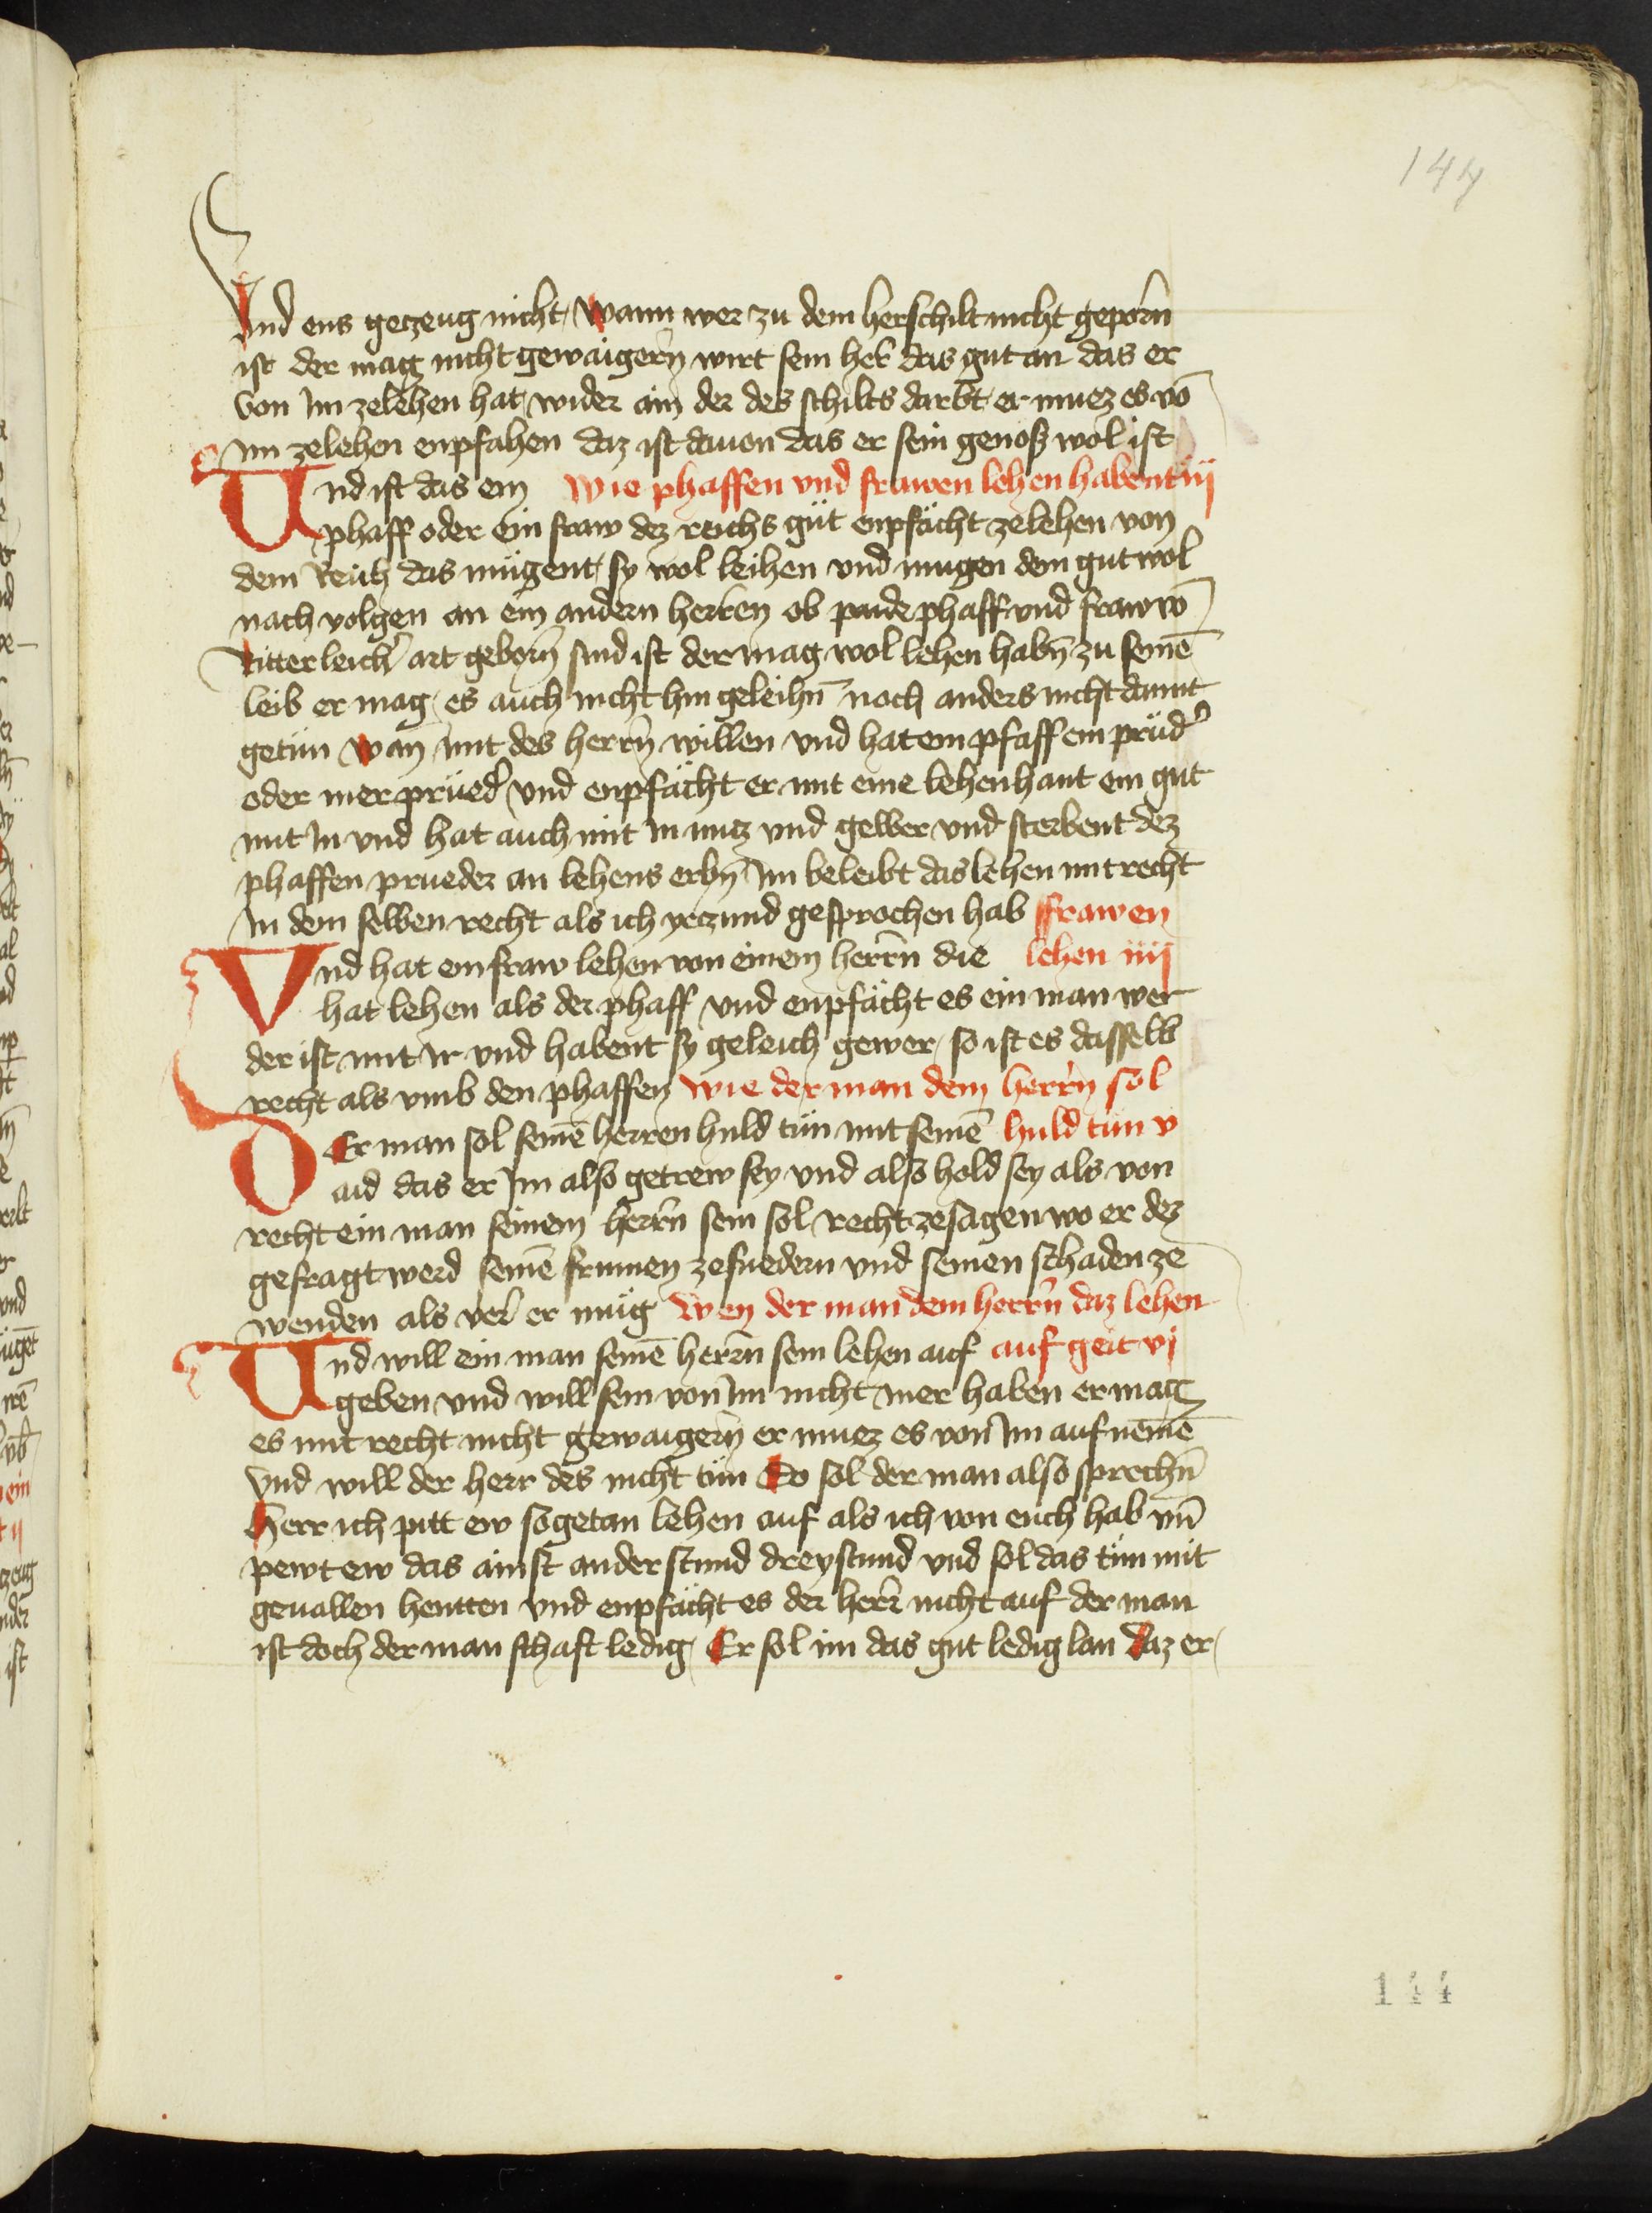 144
Vnd ens geczeug nicht / Wann wer zu dem herschilt nicht geporn̄
ist der mag nicht gewaigern̄ wirt sein her̄ das gut an das er
von Im zelehen hat / wider ain der des schilts darbt er muez es vō
im zelehen enpfahen daz ist dauon das er sein genoss wol ist
Und ist das ein Wie phaffen vnd frawen lehen habent iij
phaff oder ein fraw dez reichs güt enpfächt zelehen von
dem Reich das mügent / sy wol leihen vnd mugen dem gut wol
nach volgen an ein andern herren ob paide phaff vnd fraw vō
Ritterleicher art geborn̄ sind ist der mag wol lehen habn̄ zu seinē
leib er mag / es auch nicht hin geleihn̄ noch anders nicht damit
getün wan mit des herrn̄ willen vnd hat ein pfaff ein prüder
oder mer prüeder vnd enpfächt er mit eine lehenhant ein gut
mit In vnd hat auch mit in nutz vnd gelber vnd sterbent dez
phaffen prueder an lehens erbn̄ Im beleibt das lehen mit recht
In dem selben recht als ich yeczund gesprochen hab ffrawen
Vnd hat ein fraw lehen von einem herrn̄ die lehen iiij
hat lehen als der phaff vnd enpfächt es ein man wer
der ist mit Ir vnd habent sy geleich gewer / so ist es dasselb
recht als vmb den phaffen wie der man dem herrn̄ sol
DEr man sol seinē herren huld tün mit seinē huld tün v
aid das er Im also getrew sey vnd also hold sey als von
recht ein man seinem herrn̄ sein sol recht zesagen wo er dez
gefragt werd seinē frumen zefuedern vnd seinen schaden ze
wenden als ver er müg Wen der man dem herrn̄ daz lehen
Und will ein man seinē herrn̄ sein lehen auf auf geit vj
geben vnd will sein von Im nicht mer haben er mag
es mit recht nicht gewaigern̄ er muez es von Im auf nemē
Vnd will der herr des nicht tün So sol der man also sprechn̄
Herr ich putt ew sogetan lehen auf als ich von euch hab vn̄
pewt ew das ainst anderstund dreystund vnd sol das tün mit
geuallen hentten vnd enpfächt es der herr nicht auf der man
ist doch der man schaft ledig / Er sol im das gut ledig lan daz er /
144